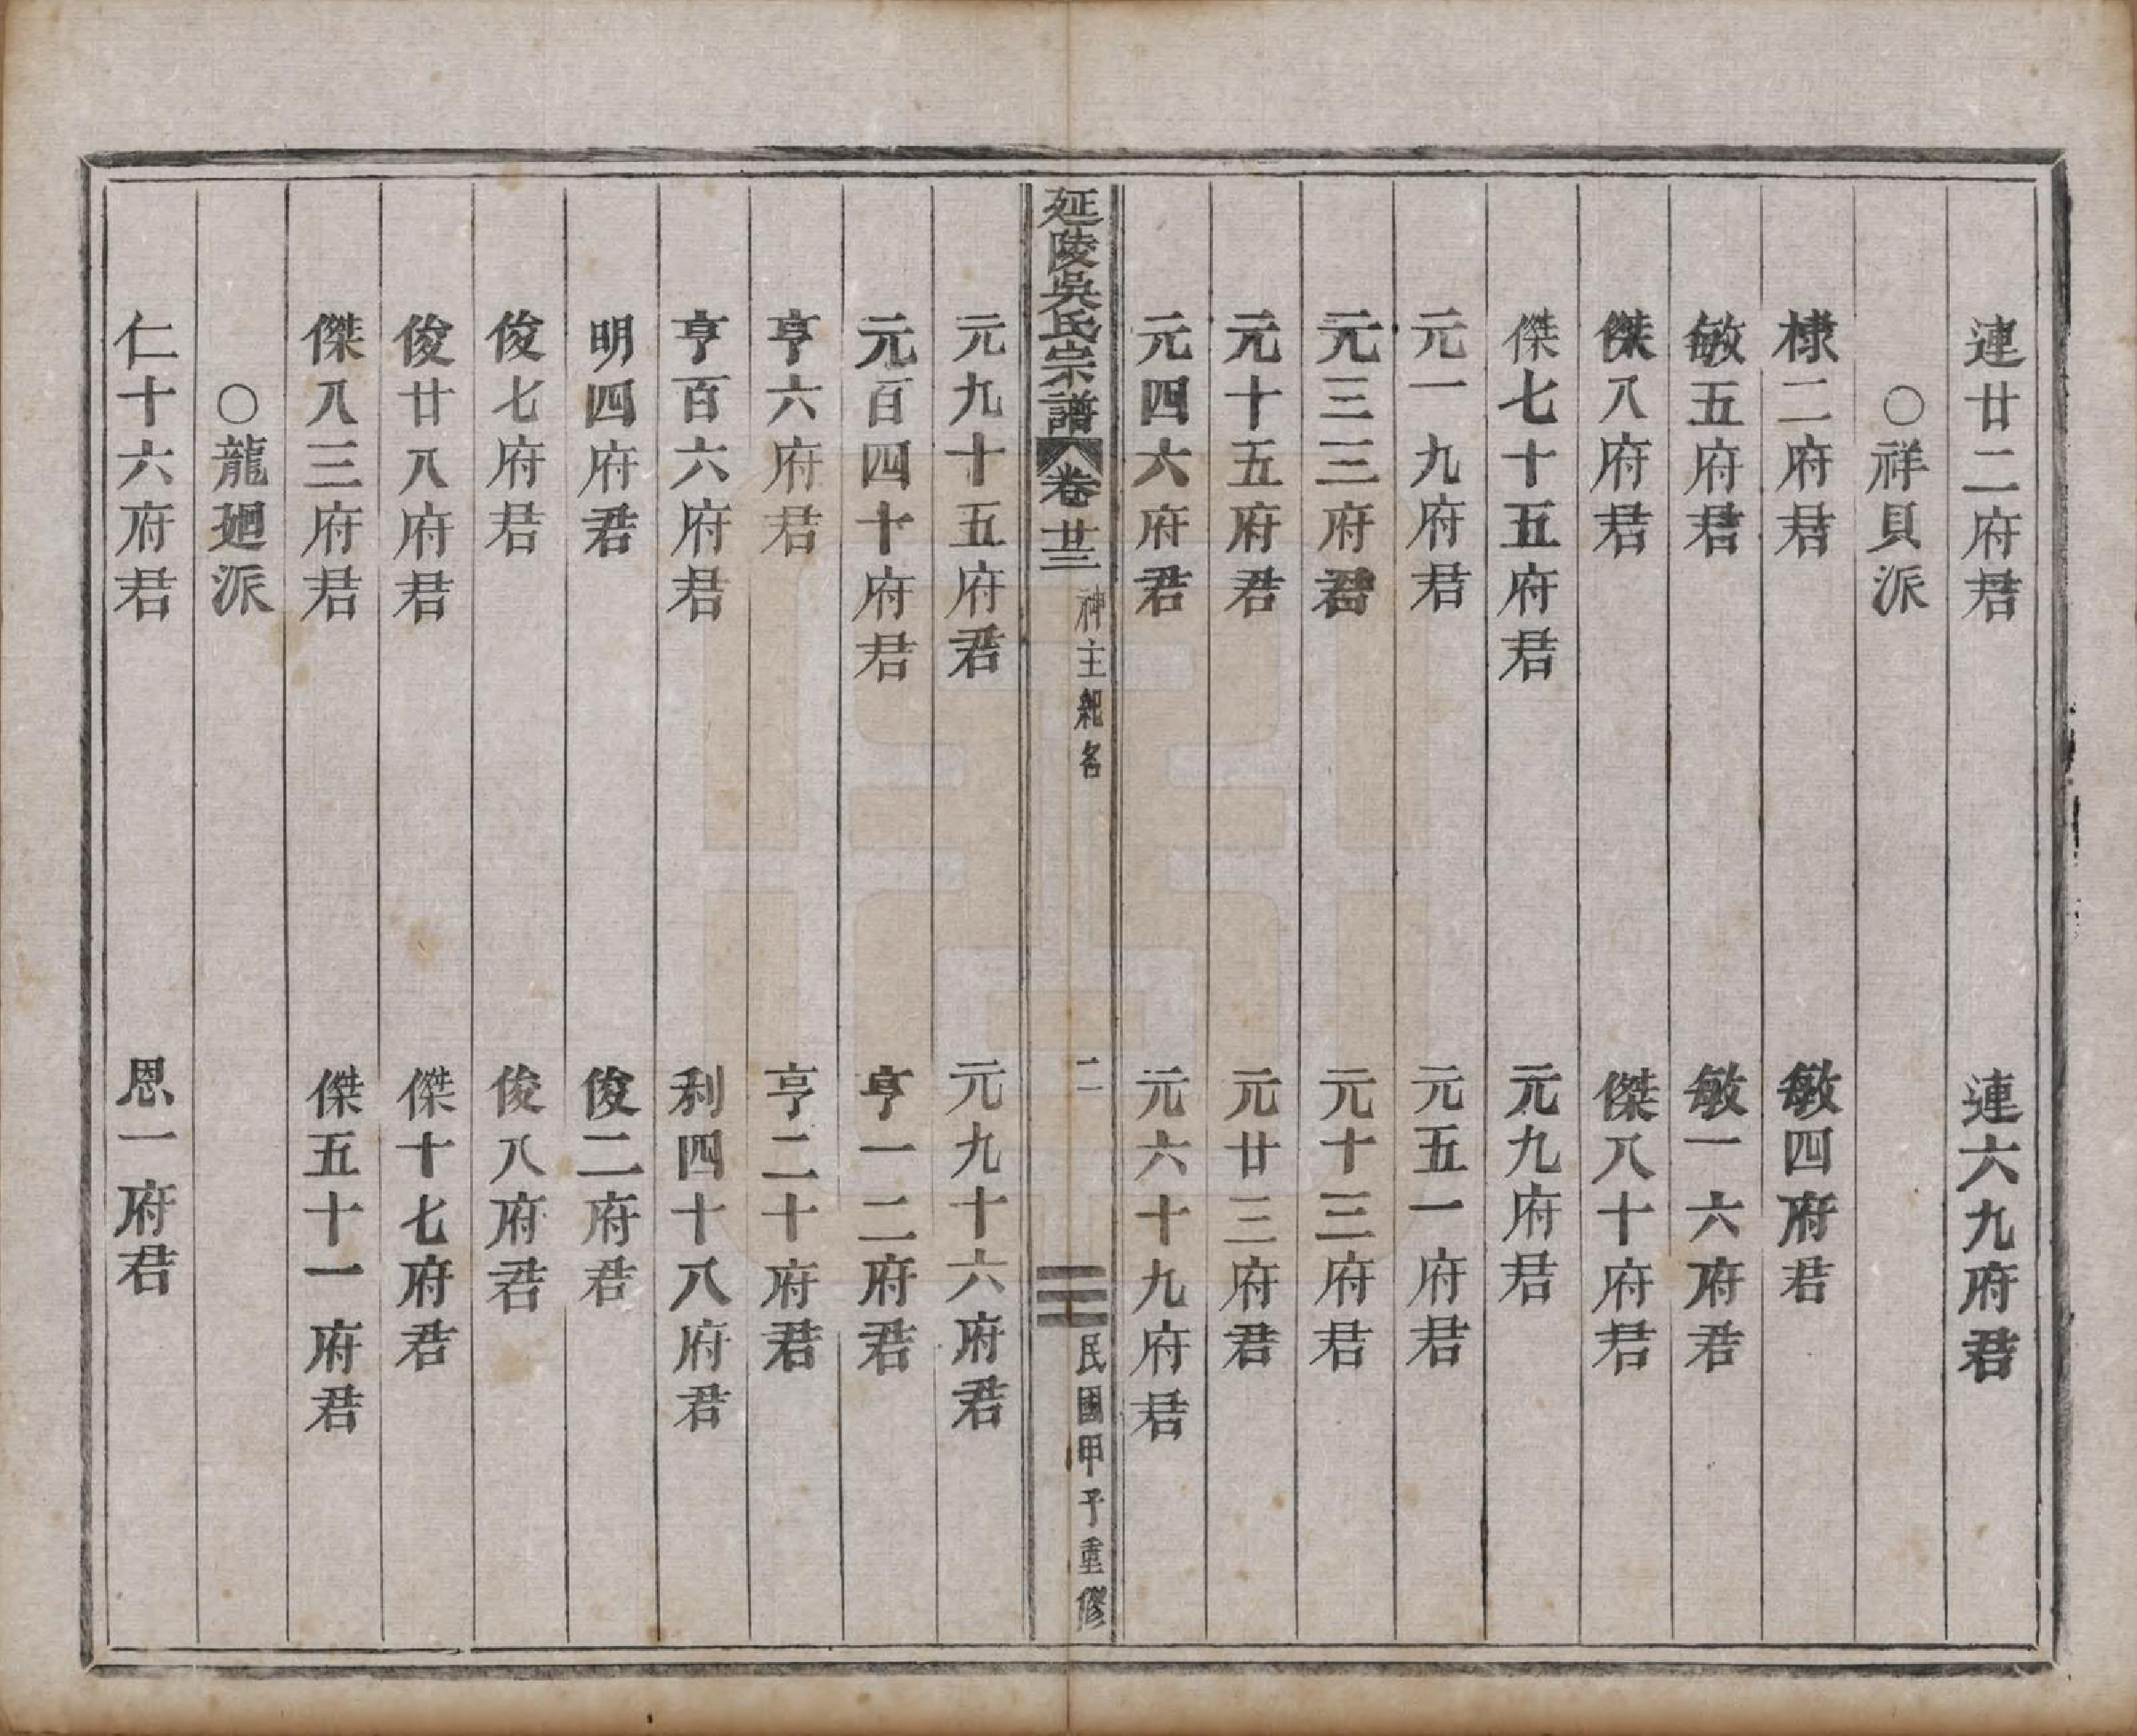 連廿二府君　連六九府君
○祥貝派
棣二府君　敏四府君
敏五府君　敏一六府君
傑八府君　傑八十府君
傑七十五府君　元九府君
元一九府君　元五一府君
元三三府君　元十三府君
元十五府君　元廿三府君
元四六府君　元六十九府君
延陵吳氏宗譜　卷廿三　神主祀名　二　民國甲子重修
元九十五府君　元九十六府君
元百四十府君　亨一二府君
亨六府君　亨二十府君
亨百六府君　利四十八府君
明四府君　俊二府君
俊七府君　俊八府君
俊廿八府君　傑十七府君
傑八三府君　傑五十一府君
○龍廻派
仁十六府君　恩一府君